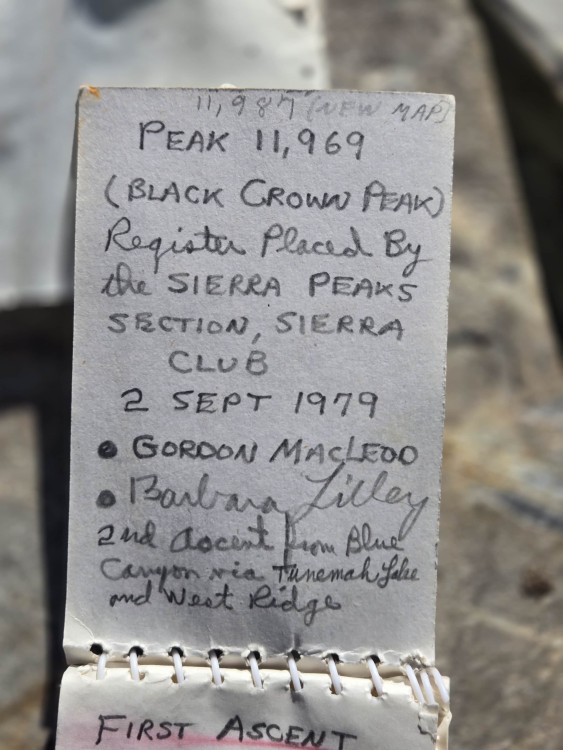 11,987 (NEW MAP)
PEAK 11,969
(BLACK CROWN PEAK)
Register Placed By
the SIERRA PEAKS
SECTION, SIERRA
CLUB
2 SEPT 1979
• GORDON MACLEOD
• Barbara Lilley
2nd ascent from Blue
Canyon via Tunemah Lake
and West Ridge
FIRST ASCENT